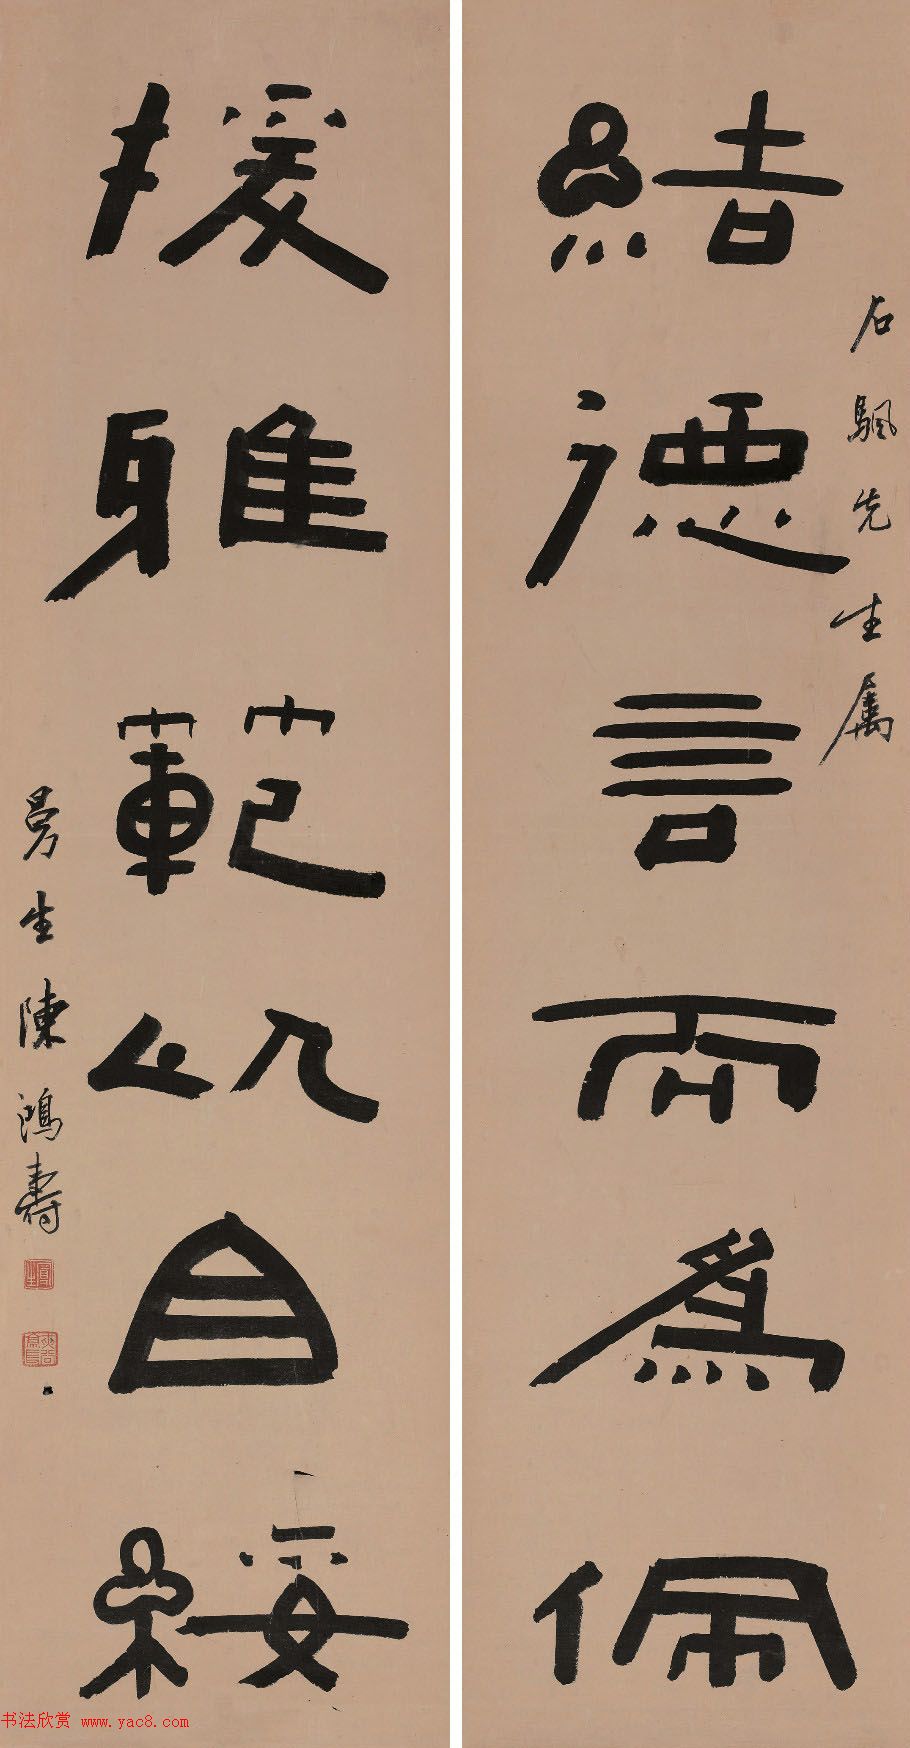 石颿先生属
結德言而為佩
援雅範以自綏
曼生陳鴻壽
书法欣赏 www.yac8.com